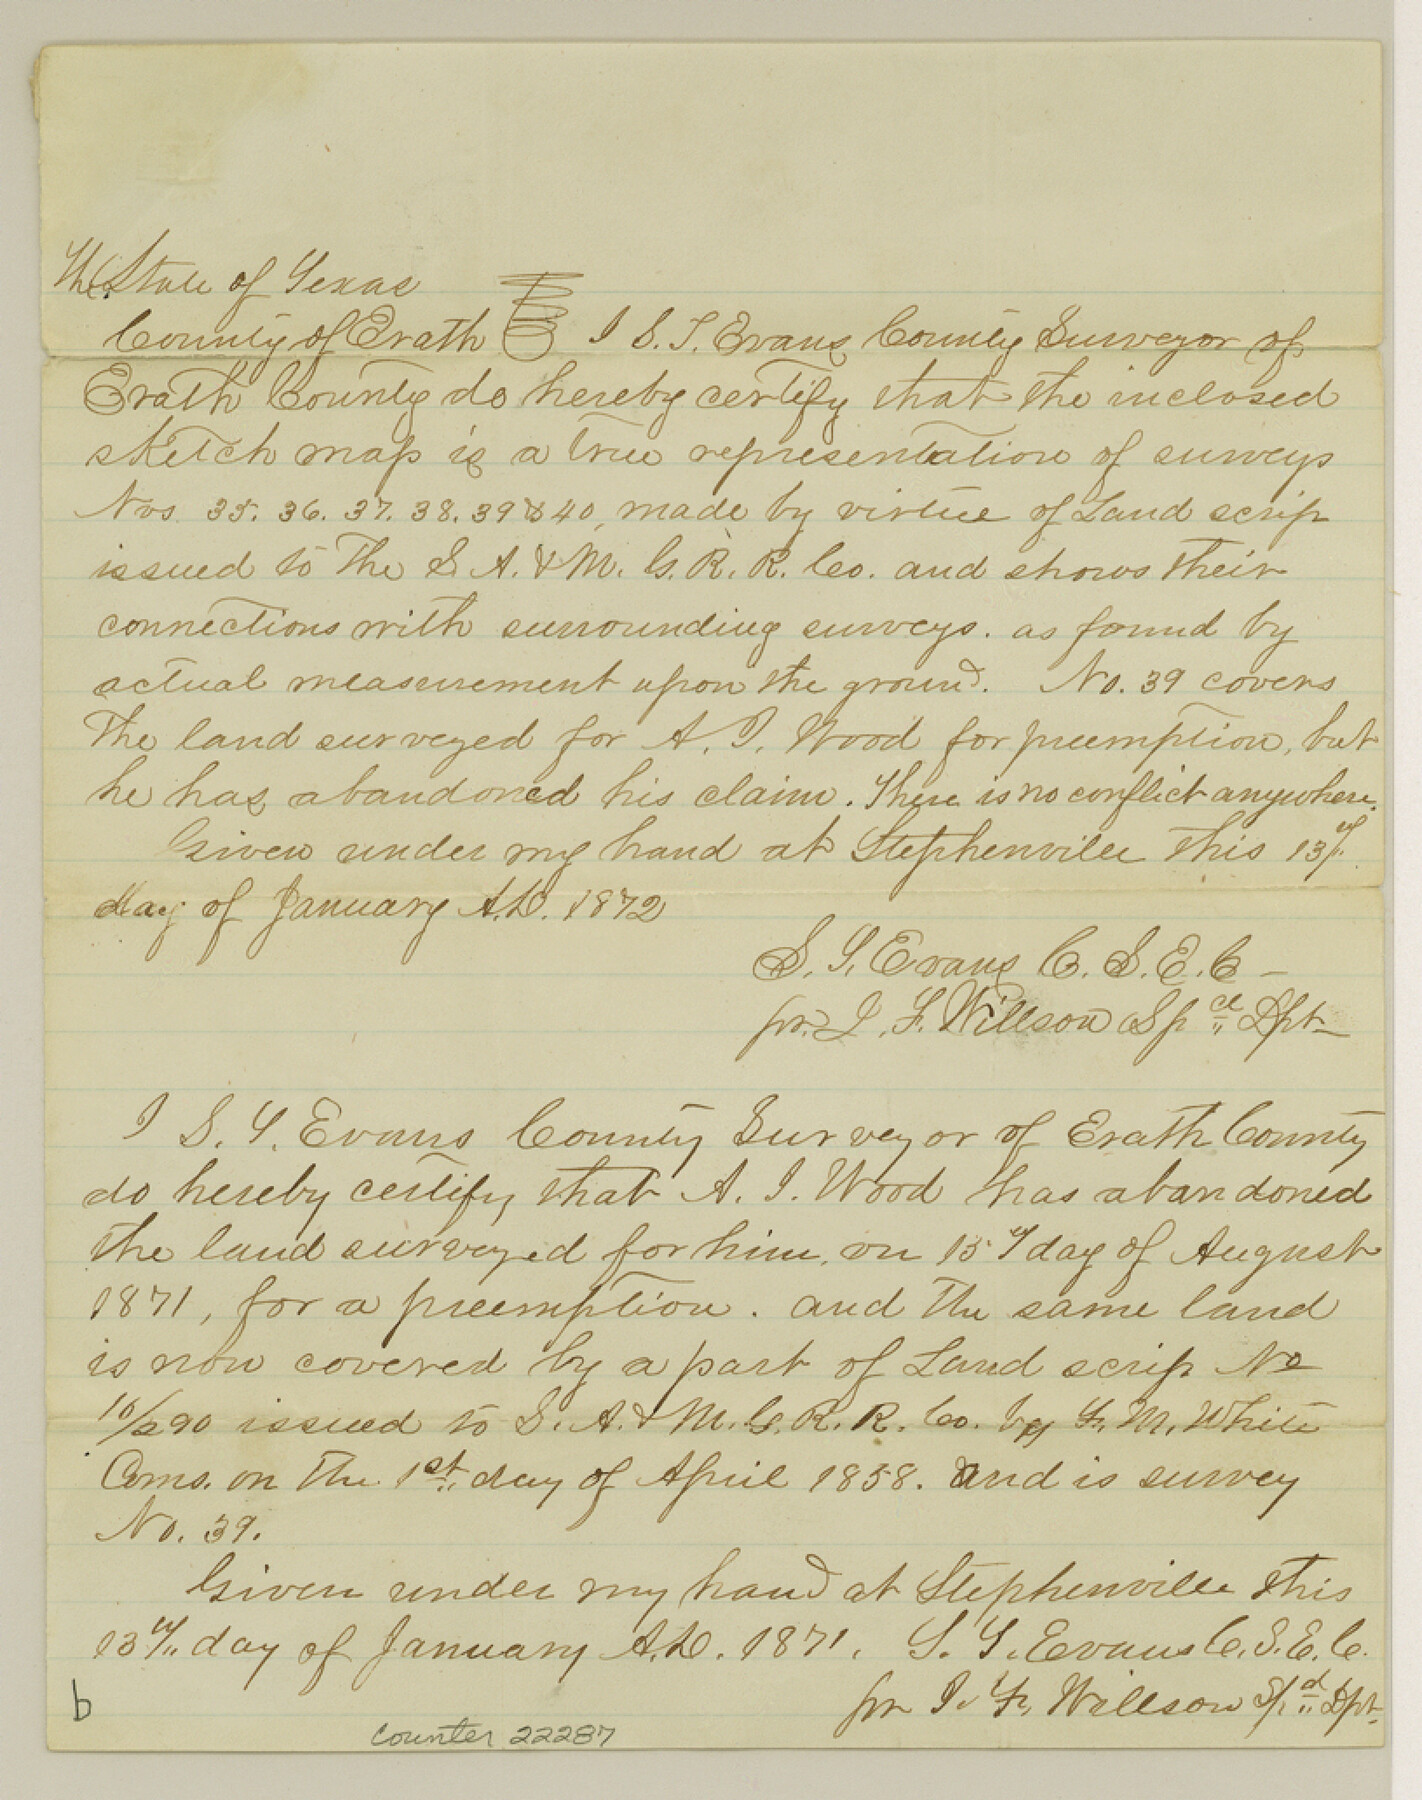 The State of Texas
County of Erath I S. T. Evans County Surveyor of
Erath County do hereby certify that the inclosed
sketch map is a true representation of surveys
Nos. 35. 36. 37. 38. 39 & 40, made by virtue of Land scrip
issued to the S. A. & M. G. R. R. Co. and shows their
connections with surrounding surveys. as found by
actual measurement upon the ground. No. 39 covers
the land surveyed for A. J. Wood for preemption, but
he has abandoned his claim. There is no conflict anywhere.
Given under my hand at Stephenville this 13th
day of January A.D. 1872
S. T. Evans C. S. E. C –
pr. J. F. Willson Spcl Dpt
I S. T. Evans County Surveyor of Erath County
do hereby certify that A. J. Wood has abandoned
the land surveyed for him, on 15th day of August
1871, for a preemption. and the same land
is now covered by a part of Land scrip No
10/290 issued to S. A. & M. G. R. R. Co. by F. M. White
Coms. on the 1st day of April 1858. and is survey
No. 39.
Given under my hand at Stephenville this
13th day of January A.D. 1871. S. T. Evans C. S. E. C.
pr J. F. Willson Spd Dpt.
b
counter 22287